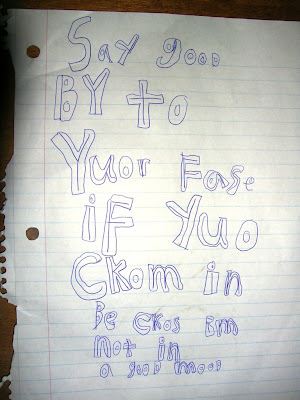 Say good
BY to
Yuor Fase
iF Yuo
Ckom in
Be Ckos Bm
Not in
a good mood